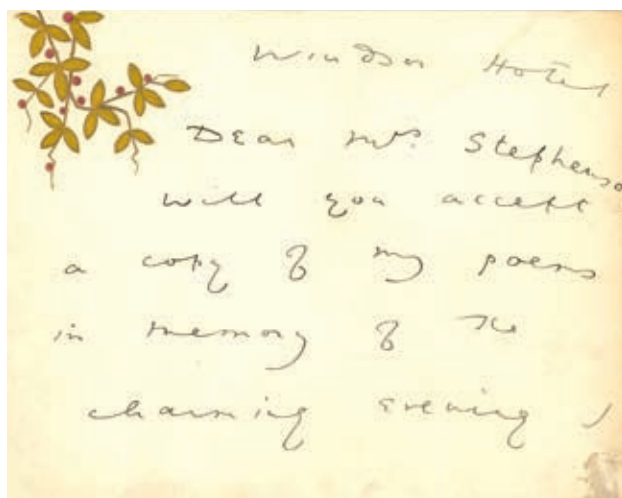 Windsor Hotel
Dear Mrs. Stephenson
will you accept
a copy of my poems
in memory of the
charming evening I